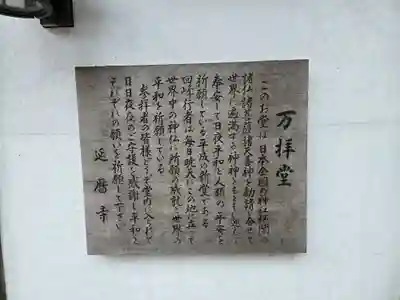 万拝堂
このお堂は日本全国の神社仏閣の
諸仏諸菩薩諸天善神を勧請し合せて
世界に遍満する神々をもお迎えし
奉安して日夜平和と人類の平安を
祈願している平成の新堂である
回峰行者は毎日暁天にこの地に立って
世界中の神仏に祈願し戦乱の世界の
平和を祈願している
参拝者の皆様どうぞ堂内に入られて
日日夜夜のご守護を感謝し平和と
それぞれの願いを祈願して下さい
延暦寺